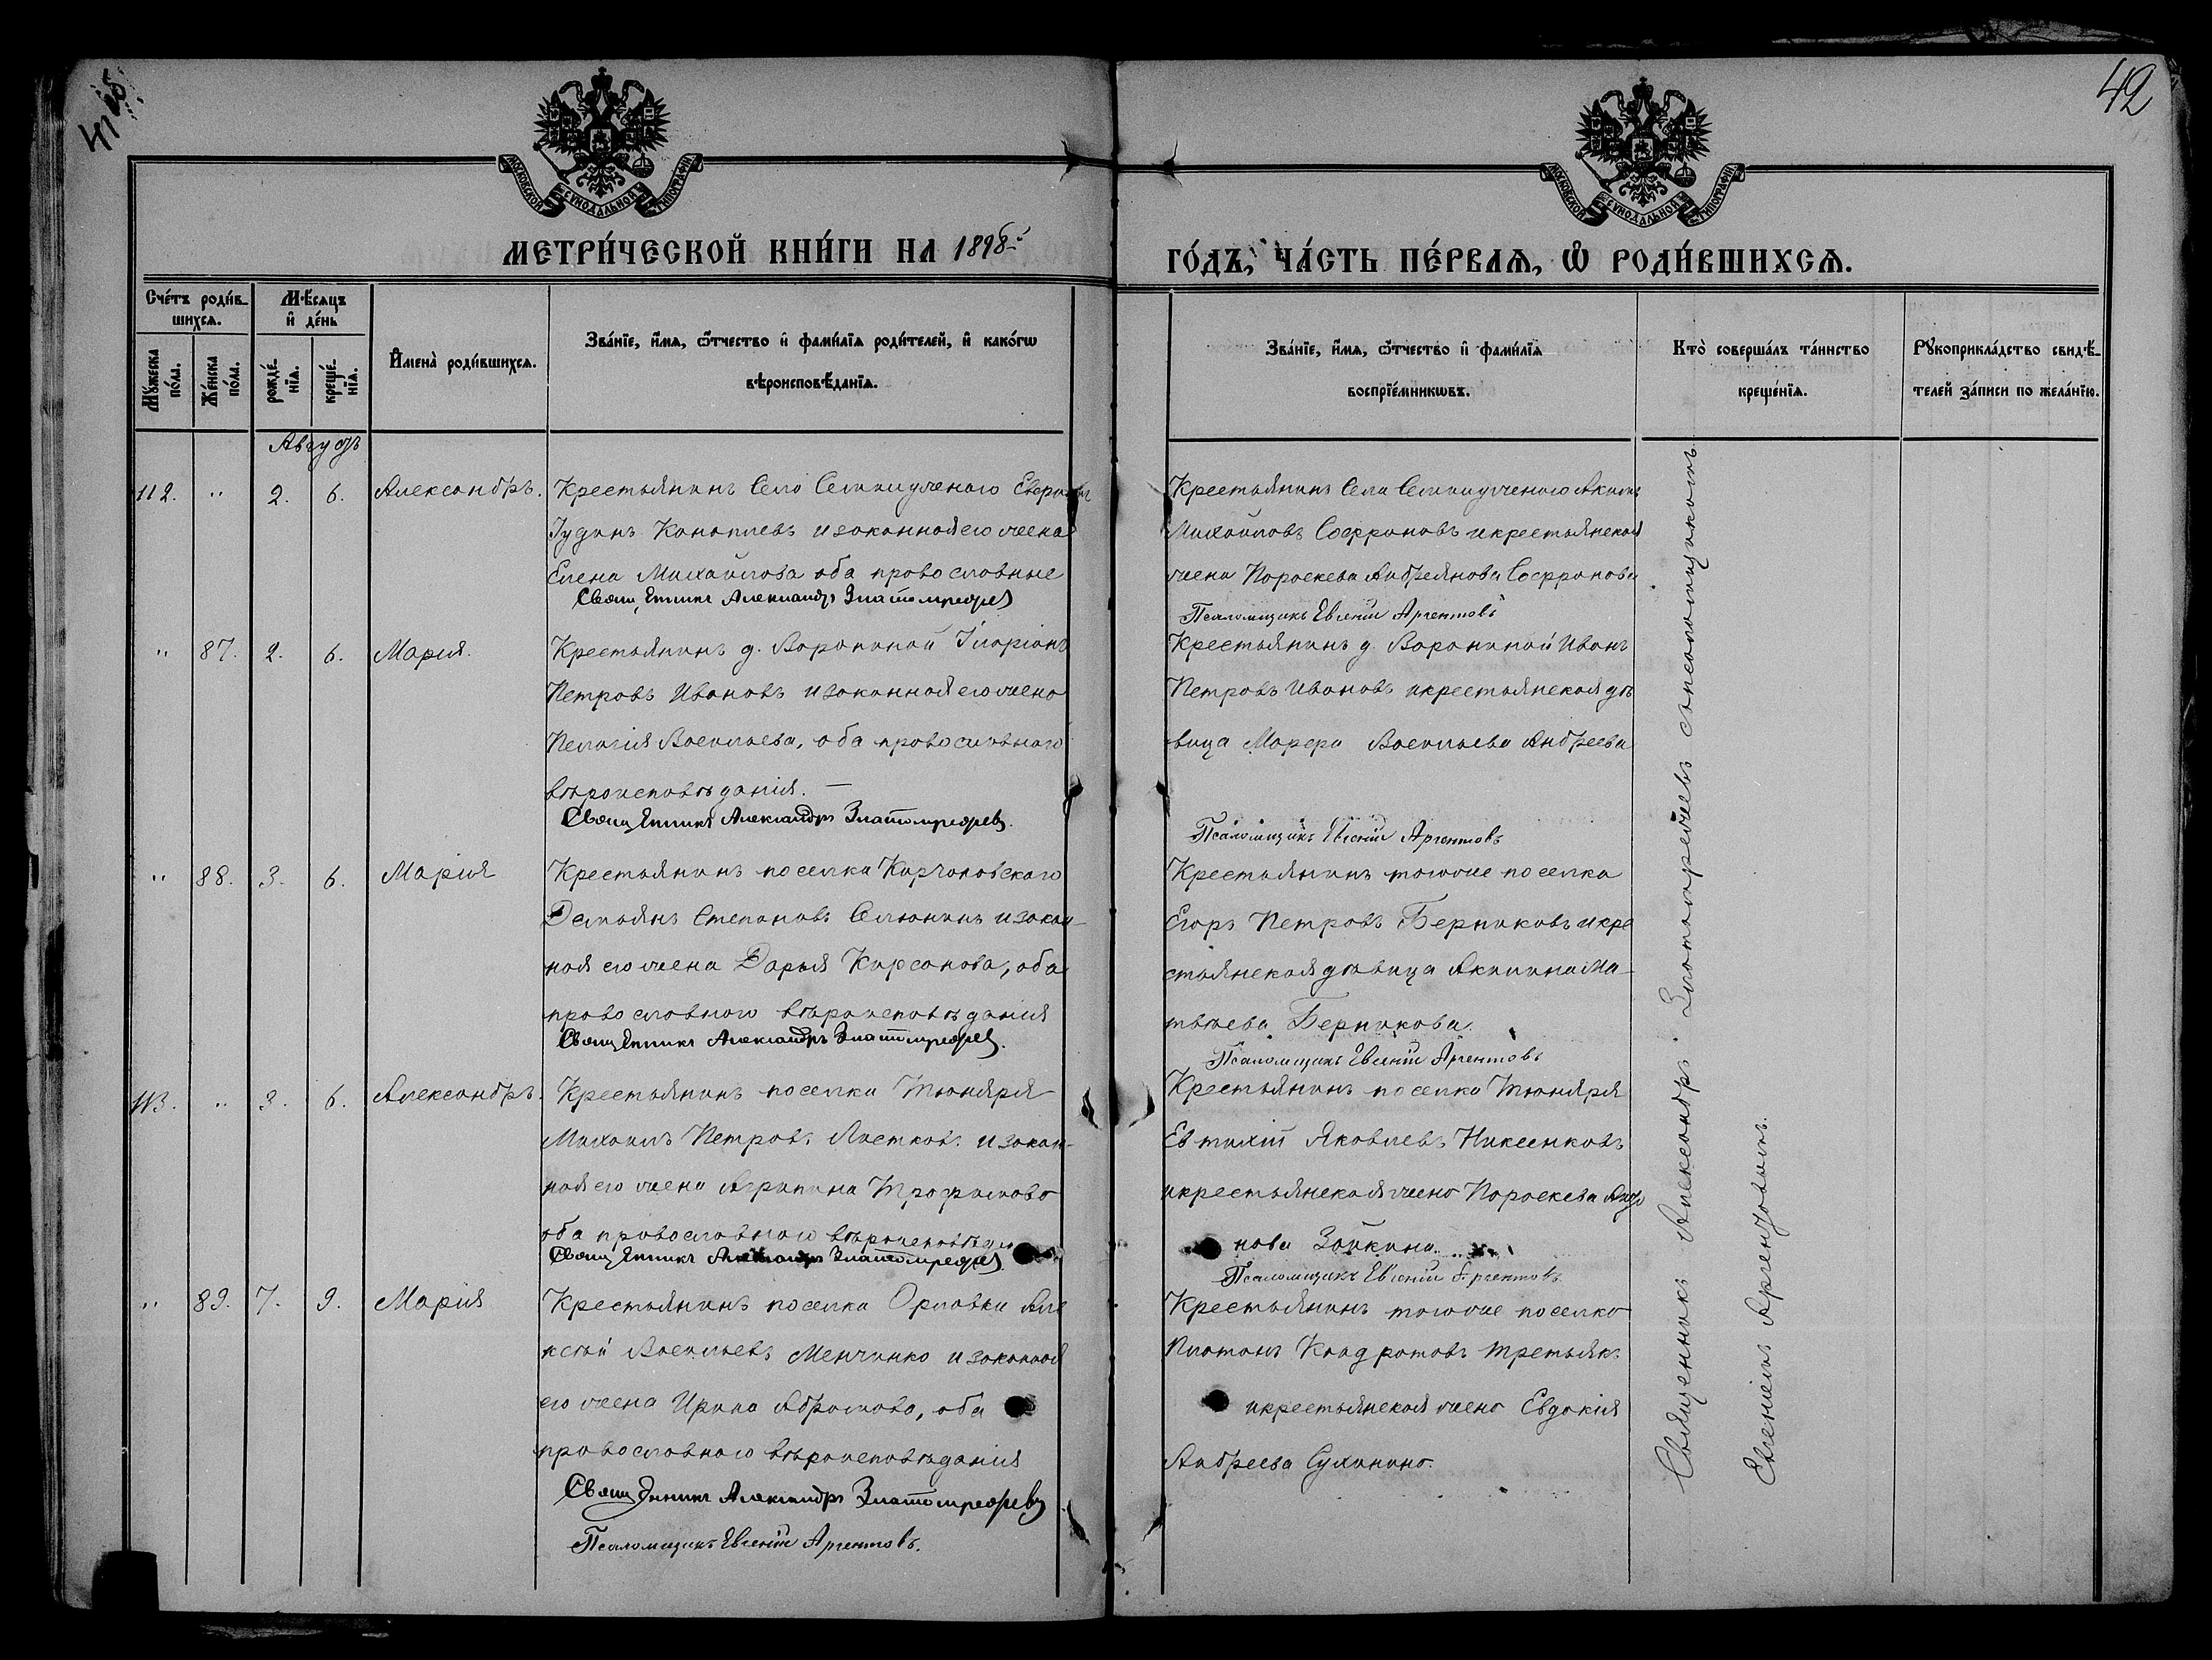 41 об.
42
МОСКОВСКОЙ СѴНОДАЛЬНОЙ ТИПОГРАФІИ
МОСКОВСКОЙ СѴНОДАЛЬНОЙ ТИПОГРАФІИ
МЕТРИ́ЧЕСКОЙ КНИ́ГИ НА 1898
ГО́ДЪ, ЧА́СТЬ ПЕ́РВАѦ, Ѡ РОДИ́ВШИХСѦ.
Сче́тъ роди́в-
шихсѧ.
Мꙋ́жеска по́ла.
Же́нска по́ла.
Мѣ́сѧцъ
и де́нь
рожде́-
нїѧ.
креще́-
нїѧ.
Имена̀ роди́вшихсѧ.
Зва́нїе, и́мѧ, ѻ́тчество и фами́лїѧ роди́телей, и како́гѡ
вѣроисповѣ́данїѧ.
Зва́нїе, и́мѧ, ѻ́тчество и фами́лїѧ
воспрїе́мникѡвъ.
Кто̀ соверша́лъ та́инство
креще́нїѧ.
Рꙋкоприкла́дство свидѣ́-
телей за́писи по жела́нїю.
Августъ
112. " 2. 6. Александръ.
Крестьянинъ Село Семипулченаго
Іудинъ Коноплевъ и законная его жена
Елена Михайлова оба православные
Священникъ Александръ Златомрежев
Крестьянинъ Села Семипулченаго Акимъ
Михайловъ Софроновъ и крестьянская
жена Пороскева Андреянова Софронова
Псаломщикъ Евгеній Аргентовъ
" 87. 2. 6. Мария.
Крестьянинъ д. Ворониной Іларіонъ
Петровъ Ивановъ и законная его жена
Пелагія Васильева, оба православнаго
вѣроисповѣданія. —
Священникъ Александръ Златомрежевъ.
Крестьянинъ д. Ворониной Иванъ
Петровъ Ивановъ и крестьянская дѣ
вица Марфа Васильева Андреева
Псаломщикъ Евгеній Аргентовъ
" 88. 3. 6. Марія
Крестьянинъ поселка Карчановскаго
Демьянъ Степановъ Семонинъ и закон-
ная его жена Дарья Кирсанова, оба
православнаго вѣроисповѣданія
Священникъ Александръ Златомрежев.
Крестьянинъ тогоже поселка
Егоръ Петровъ Берниковъ и кре
стьянская дѣвица Акилина Ма-
твѣева Берникова.
Псаломщикъ Евгеній Аргентовъ
113. " 3. 6. Александръ.
Крестьянинъ поселка Тюняря
Михаилъ Петровъ Листковъ и закон-
ная его жена Агрипина Трофимова
оба православнаго вѣроисповѣданія
Священникъ Александръ Златомрежев
Крестьянинъ поселка Тюняря
Евтихій Яковлевъ Никсенковъ
и крестьянская жена Пороскева
нова Зойкина.
Псаломщикъ Евгеній Аргентовъ
" 89. 7. 9. Мария
Крестьянинъ поселка Орловки Але
ксѣй Васильевъ Менчинко и законная
его жена Ирина Абрамова, оба
православнаго вѣроисповѣданія
Священникъ Александръ Златомрежевъ
Псаломщикъ Евгеній Аргентовъ.
Крестьянинъ тогоже поселка
Платонъ Кондратовъ Третьякъ
и крестьянская жена Евдокія
Андреева Сухинина.
Священникъ Александръ Златомрежевъ съ псаломщикомъ
Евгеніемъ Аргентовымъ.